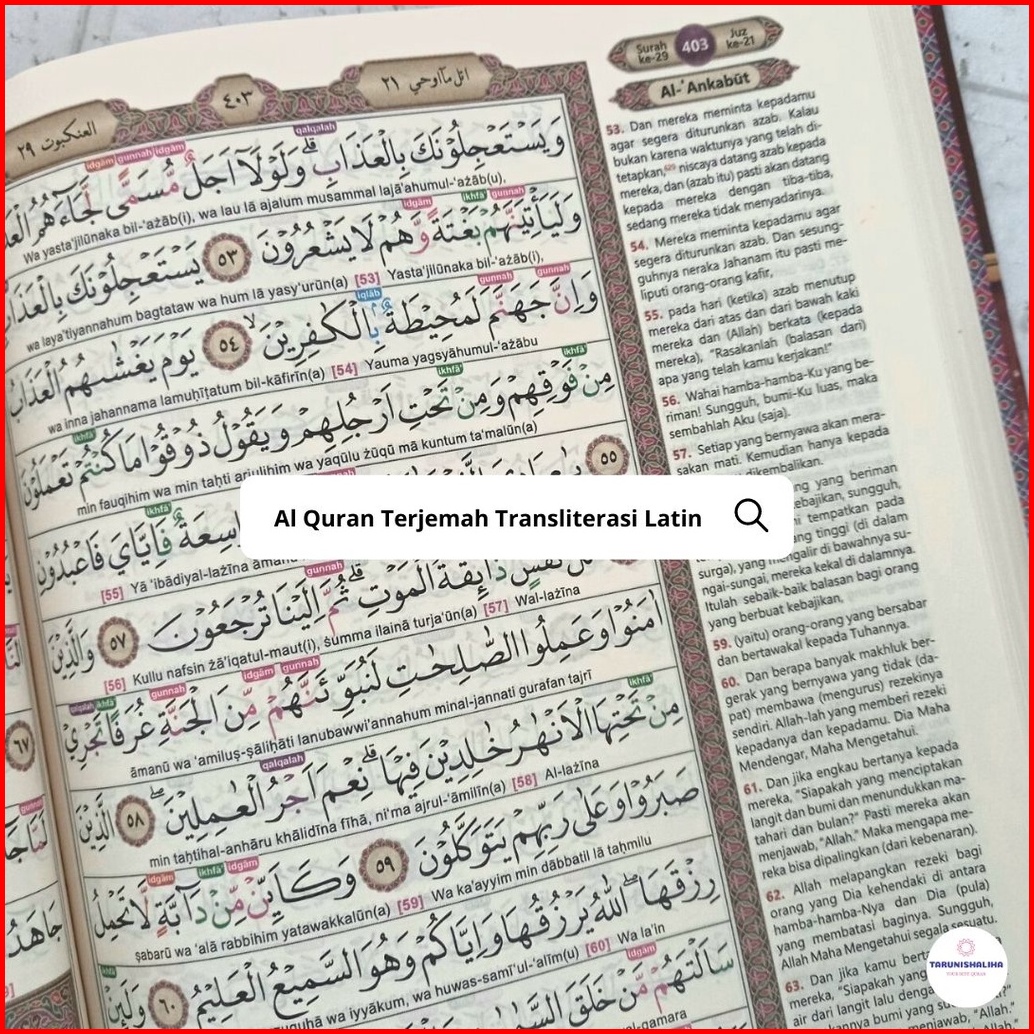 Surah
ke-29
403
Juz
ke-21
Al-'Ankabūt
العنكبوت ٢٩
٤٠٣
اتل مآاوحي ٢١
qalqalah
idgām gunnah idgām
وَيَسْتَعْجِلُوْنَكَ بِالْعَذَابِۗ وَلَوْلَآ اَجَلٌ مُّسَمًّى لَّجَاۤءَهُمُ
Wa yasta'jilūnaka bil-'ażāb(i), wa lau lā ajalum musammal lajā'ahumul-'ażāb(u),
idgām ikhfā' gunnah
وَلَيَأْتِيَنَّهُمْ بَغْتَةً وَّهُمْ لَا يَشْعُرُوْنَ ٥٣ يَسْتَعْجِلُوْنَكَ بِالْعَذَابِ
wa laya'tiyannahum bagtataw wa hum lā yasy'urūn(a) [53] Yasta'jilūnaka bil-'ażāb(i),
iqlāb gunnah gunnah
وَاِنَّ جَهَنَّمَ لَمُحِيْطَةٌ ۢ بِالْكٰفِرِيْنَۙ ٥٤ يَوْمَ يَغْشٰىهُمُ الْعَذَابُ
wa inna jahannama lamuḥīṭatum bil-kāfirīn(a) [54] Yauma yagsyāhumul-'ażābu
ikhfā' ikhfā' ikhfā'
مِنْ فَوْقِهِمْ وَمِنْ تَحْتِ اَرْجُلِهِمْ وَيَقُوْلُ ذُوْقُوْا مَا كُنْتُمْ تَعْمَلُوْنَ
min fauqihim wa min taḥti arjulihim wa yaqūlu żūqū mā kuntum ta'malūn(a)
٥٥
ikhfā'
فَاِيَّايَ فَاعْبُدُوْنِ
[55] Yā 'ibādiyal-lażīna
gunnah
ذَاۤىِٕقَةُ الْمَوْتِۗ ثُمَّ اِلَيْنَا تُرْجَعُوْنَ ٥٧ وَالَّذِيْنَ
[56] Kullu nafsin żā'iqatul-maut(i), ṡumma ilainā turja'ūn(a) [57] Wal-lażīna
qalqalah ikhfā' gunnah idgām gunnah
اٰمَنُوْا وَعَمِلُوا الصّٰلِحٰتِ لَنُبَوِّئَنَّهُمْ مِّنَ الْجَنَّةِ غُرَفًا تَجْرِيْ
āmanū wa 'amiluṣ-ṣāliḥāti lanubawwi'annahum minal-jannati gurafan tajrī
qalqalah ikhfā'
مِنْ تَحْتِهَا الْاَنْهٰرُ خٰلِدِيْنَ فِيْهَاۗ نِعْمَ اَجْرُ الْعٰمِلِيْنَۖ ٥٨ الَّذِيْنَ
min taḥtihal-anhāru khālidīna fīhā, ni'ma ajrul-'āmilīn(a) [58] Al-lażīna
idgām ikhfā' idgām
صَبَرُوْا وَعَلٰى رَبِّهِمْ يَتَوَكَّلُوْنَ ٥٩ وَكَاَيِّنْ مِّنْ دَاۤبَّةٍ لَّا تَحْمِلُ
ṣabarū wa 'alā rabbihim yatawakkalūn(a) [59] Wa ka'ayyim min dābbatil lā taḥmilu
رِزْقَهَاۖ اَللّٰهُ يَرْزُقُهَا وَاِيَّاكُمْ وَهُوَ السَّمِيْعُ الْعَلِيْمُ ٦٠ وَلَىِٕنْ
wa iyyākum, wa huwas-samī'ul-'alīm(u) [60] Wa la'in
idgām
سَاَلْتَهُمْ مَّنْ خَلَقَ
53. Dan mereka meminta kepadamu
agar segera diturunkan azab. Kalau
bukan karena waktunya yang telah di-
tetapkan, niscaya datang azab kepada
mereka, dan (azab itu) pasti akan datang
kepada mereka dengan tiba-tiba,
sedang mereka tidak menyadarinya.
54. Mereka meminta kepadamu agar
segera diturunkan azab. Dan sesung-
guhnya neraka Jahanam itu pasti me-
liputi orang-orang kafir,
55. pada hari (ketika) azab menutup
mereka dari atas dan dari bawah kaki
mereka dan (Allah) berkata (kepada
mereka), "Rasakanlah (balasan dari)
apa yang telah kamu kerjakan!"
56. Wahai hamba-hamba-Ku yang be-
riman! Sungguh, bumi-Ku luas, maka
sembahlah Aku (saja).
57. Setiap yang bernyawa akan mera-
sakan mati. Kemudian hanya kepada
dikembalikan.
yang beriman
kebajikan, sungguh,
tempatkan pada
tinggi (di dalam
surga), yang mengalir di bawahnya su-
ngai-sungai, mereka kekal di dalamnya.
Itulah sebaik-baik balasan bagi orang
yang berbuat kebajikan,
59. (yaitu) orang-orang yang bersabar
dan bertawakal kepada Tuhannya.
60. Dan berapa banyak makhluk ber-
gerak yang bernyawa yang tidak (da-
pat) membawa (mengurus) rezekinya
sendiri. Allah-lah yang memberi rezeki
kepadanya dan kepadamu. Dia Maha
Mendengar, Maha Mengetahui.
61. Dan jika engkau bertanya kepada
mereka, "Siapakah yang menciptakan
langit dan bumi dan menundukkan ma-
tahari dan bulan?" Pasti mereka akan
menjawab, "Allah." Maka mengapa me-
reka bisa dipalingkan (dari kebenaran).
62. Allah melapangkan rezeki bagi
orang yang Dia kehendaki di antara
hamba-hamba-Nya dan Dia (pula)
yang membatasi baginya. Sungguh,
Allah Maha Mengetahui segala sesuatu.
63. Dan jika kamu
mereka, "Siapakah yang
air dari langit lalu dengan
Al Quran Terjemah Transliterasi Latin
TARUNISHALIHA